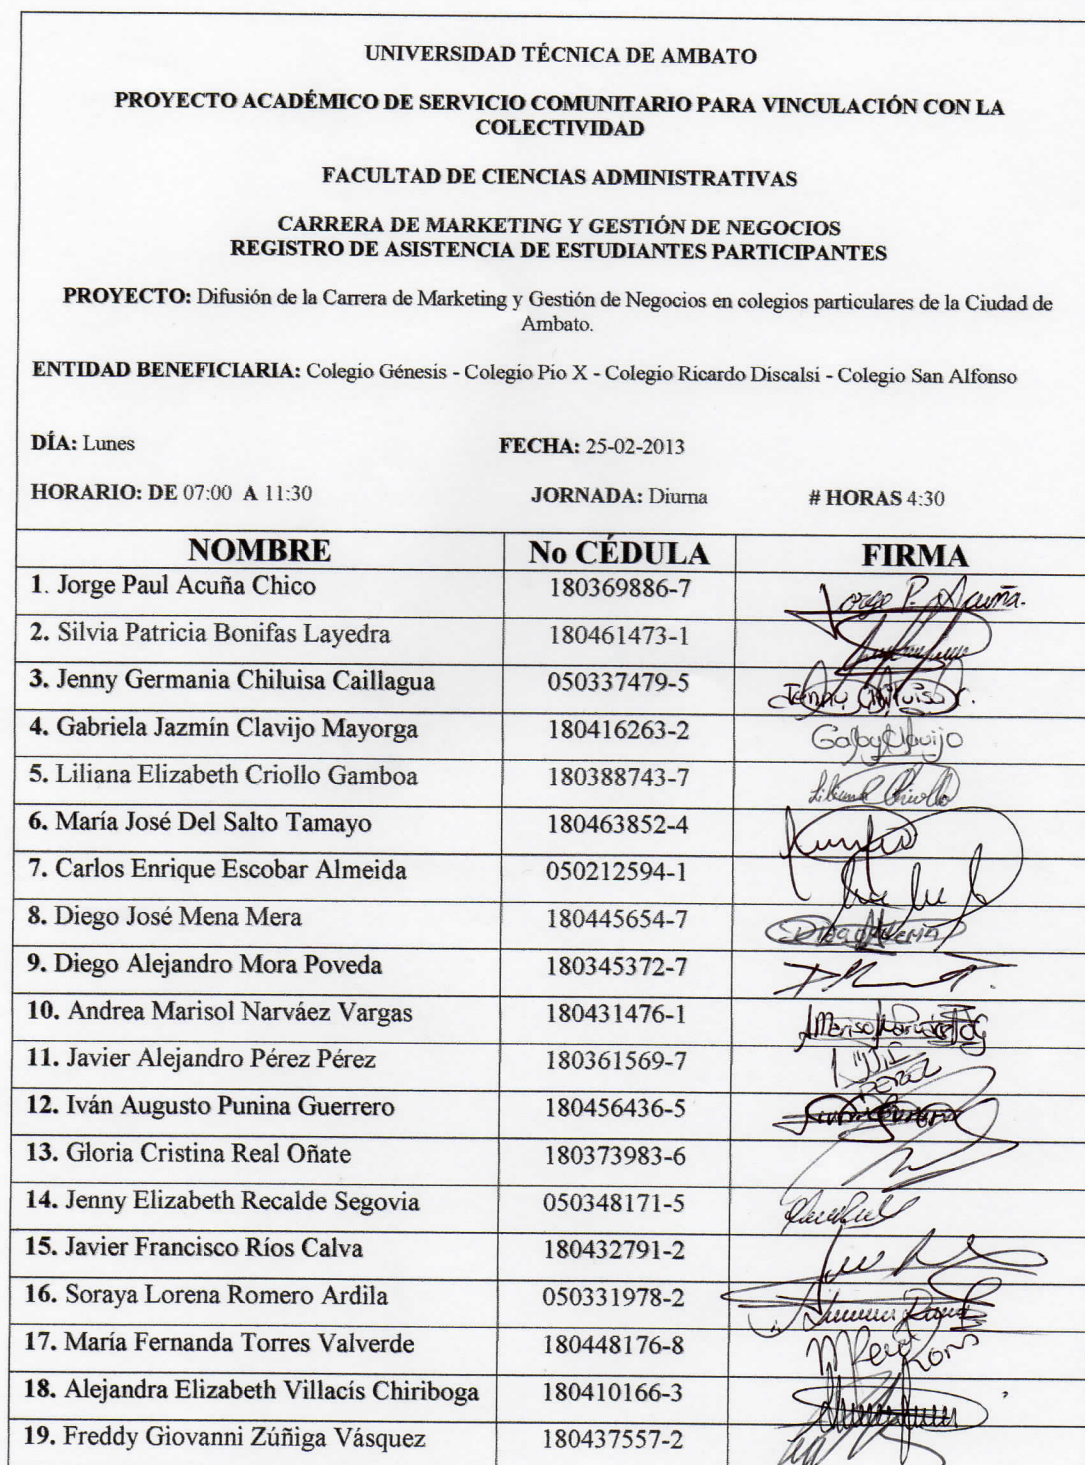 UNIVERSIDAD TÉCNICA DE AMBATO
PROYECTO ACADÉMICO DE SERVICIO COMUNITARIO PARA VINCULACIÓN CON LA
COLECTIVIDAD
FACULTAD DE CIENCIAS ADMINISTRATIVAS
CARRERA DE MARKETING Y GESTIÓN DE NEGOCIOS
REGISTRO DE ASISTENCIA DE ESTUDIANTES PARTICIPANTES
PROYECTO: Difusión de la Carrera de Marketing y Gestión de Negocios en colegios particulares de la Ciudad de
Ambato.
ENTIDAD BENEFICIARIA: Colegio Génesis - Colegio Pio X - Colegio Ricardo Discalsi - Colegio San Alfonso
DÍA: Lunes FECHA: 25-02-2013
HORARIO: DE 07:00 A 11:30 JORNADA: Diurna # HORAS 4:30
NOMBRE No CÉDULA FIRMA
1. Jorge Paul Acuña Chico 180369886-7 Jorge P. Acuña.
2. Silvia Patricia Bonifas Layedra 180461473-1
3. Jenny Germania Chiluisa Caillagua 050337479-5 Jenny Chiluisa C.
4. Gabriela Jazmín Clavijo Mayorga 180416263-2 Gaby Clavijo
5. Liliana Elizabeth Criollo Gamboa 180388743-7 Liliana Criollo
6. María José Del Salto Tamayo 180463852-4
7. Carlos Enrique Escobar Almeida 050212594-1
8. Diego José Mena Mera 180445654-7 Diego Mena
9. Diego Alejandro Mora Poveda 180345372-7
10. Andrea Marisol Narváez Vargas 180431476-1
11. Javier Alejandro Pérez Pérez 180361569-7 PEREZ
12. Iván Augusto Punina Guerrero 180456436-5
13. Gloria Cristina Real Oñate 180373983-6
14. Jenny Elizabeth Recalde Segovia 050348171-5
15. Javier Francisco Ríos Calva 180432791-2
16. Soraya Lorena Romero Ardila 050331978-2
17. María Fernanda Torres Valverde 180448176-8
18. Alejandra Elizabeth Villacís Chiriboga 180410166-3
19. Freddy Giovanni Zúñiga Vásquez 180437557-2